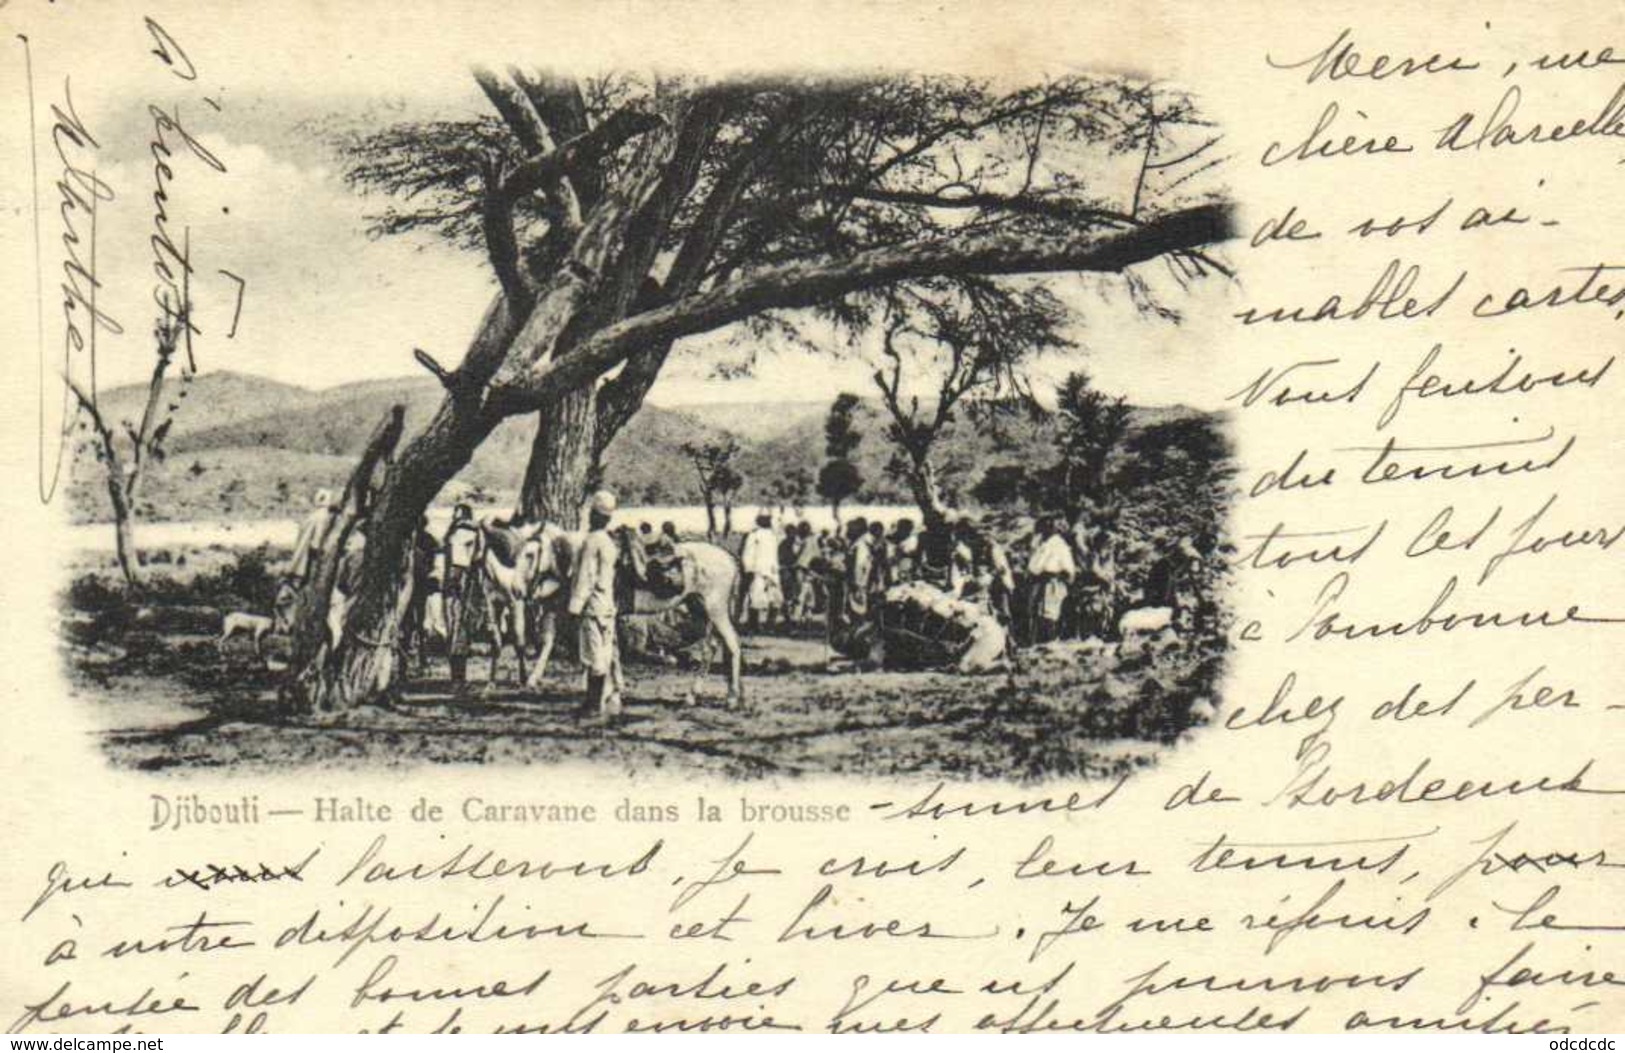 Merci, ma
chère Marcelle,
de vos ai-
mables cartes.
Nous faisons
du tennis
tous les jours
à
chez des per-
-sonnes de Bordeaux
qui nous laisseront, je crois, leur tennis, pour
à notre disposition cet hiver. Je me réjouis à la
pensée des bonnes parties que ns pourrons faire
et je vous envoie mes affectueuses amitiés
à bientôt
Marthe
Djibouti — Halte de Caravane dans la brousse
www.delcampe.net
odcdcdc